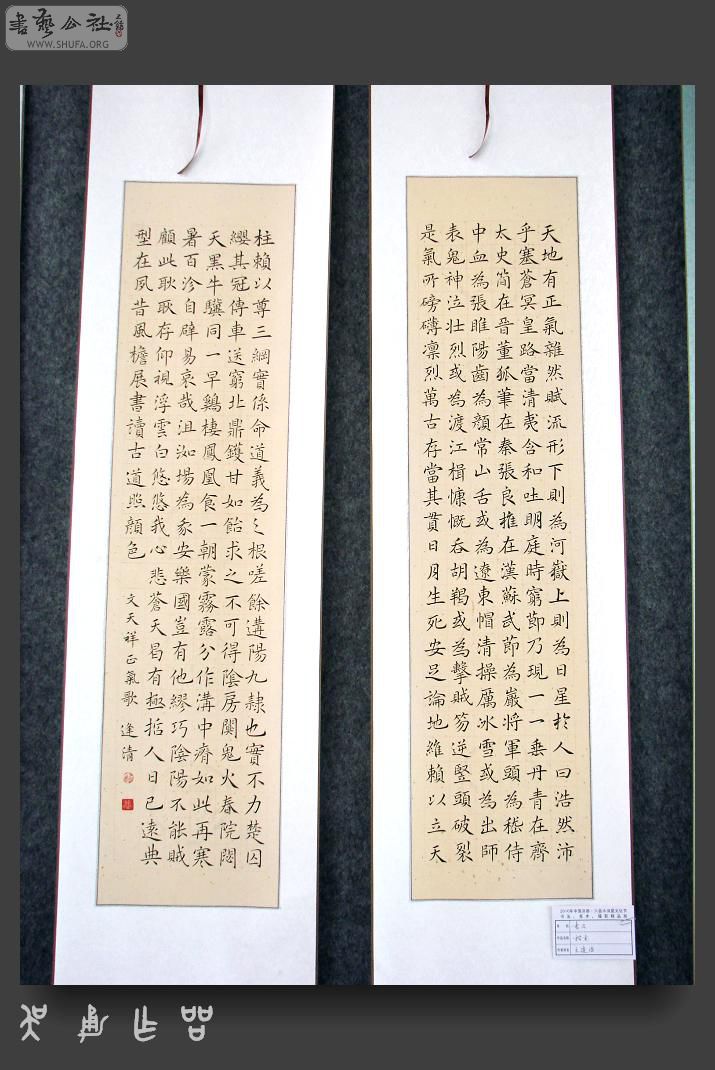 書藝公社
WWW.SHUFA.ORG
天地有正氣雜然賦流形下則為河嶽上則為日星於人曰浩然沛
乎塞蒼冥皇路當清夷含和吐明庭時窮節乃現一一垂丹青在齊
太史简在晉董狐筆在秦張良推在漢蘇武節為嚴將軍頭為嵇侍
中血為張睢陽齒為顏常山舌或為遼東帽清操厲冰雪或為出師
表鬼神泣壯烈或為渡江楫慷慨吞胡羯或為擊賊笏逆豎頭破裂
是氣所磅礴凛烈萬古存當其貫日月生死安足論地維賴以立天
柱賴以尊三綱實係命道義為之根嗟餘遘陽九隸也實不力楚囚
纓其冠傳車送窮北鼎鑊甘如飴求之不可得陰房闃鬼火春院閟
天黑牛驥同一早鷄棲鳳凰食一朝蒙霧露分作溝中瘠如此再寒
暑百沴自辟易哀哉沮洳場為豕安樂國豈有他繆巧陰陽不能賊
顧此耿耿存仰視浮雲白悠悠我心悲蒼天曷有極哲人日已遠典
型在夙昔風檐展書讀古道照顏色
文天祥正氣歌 逢清